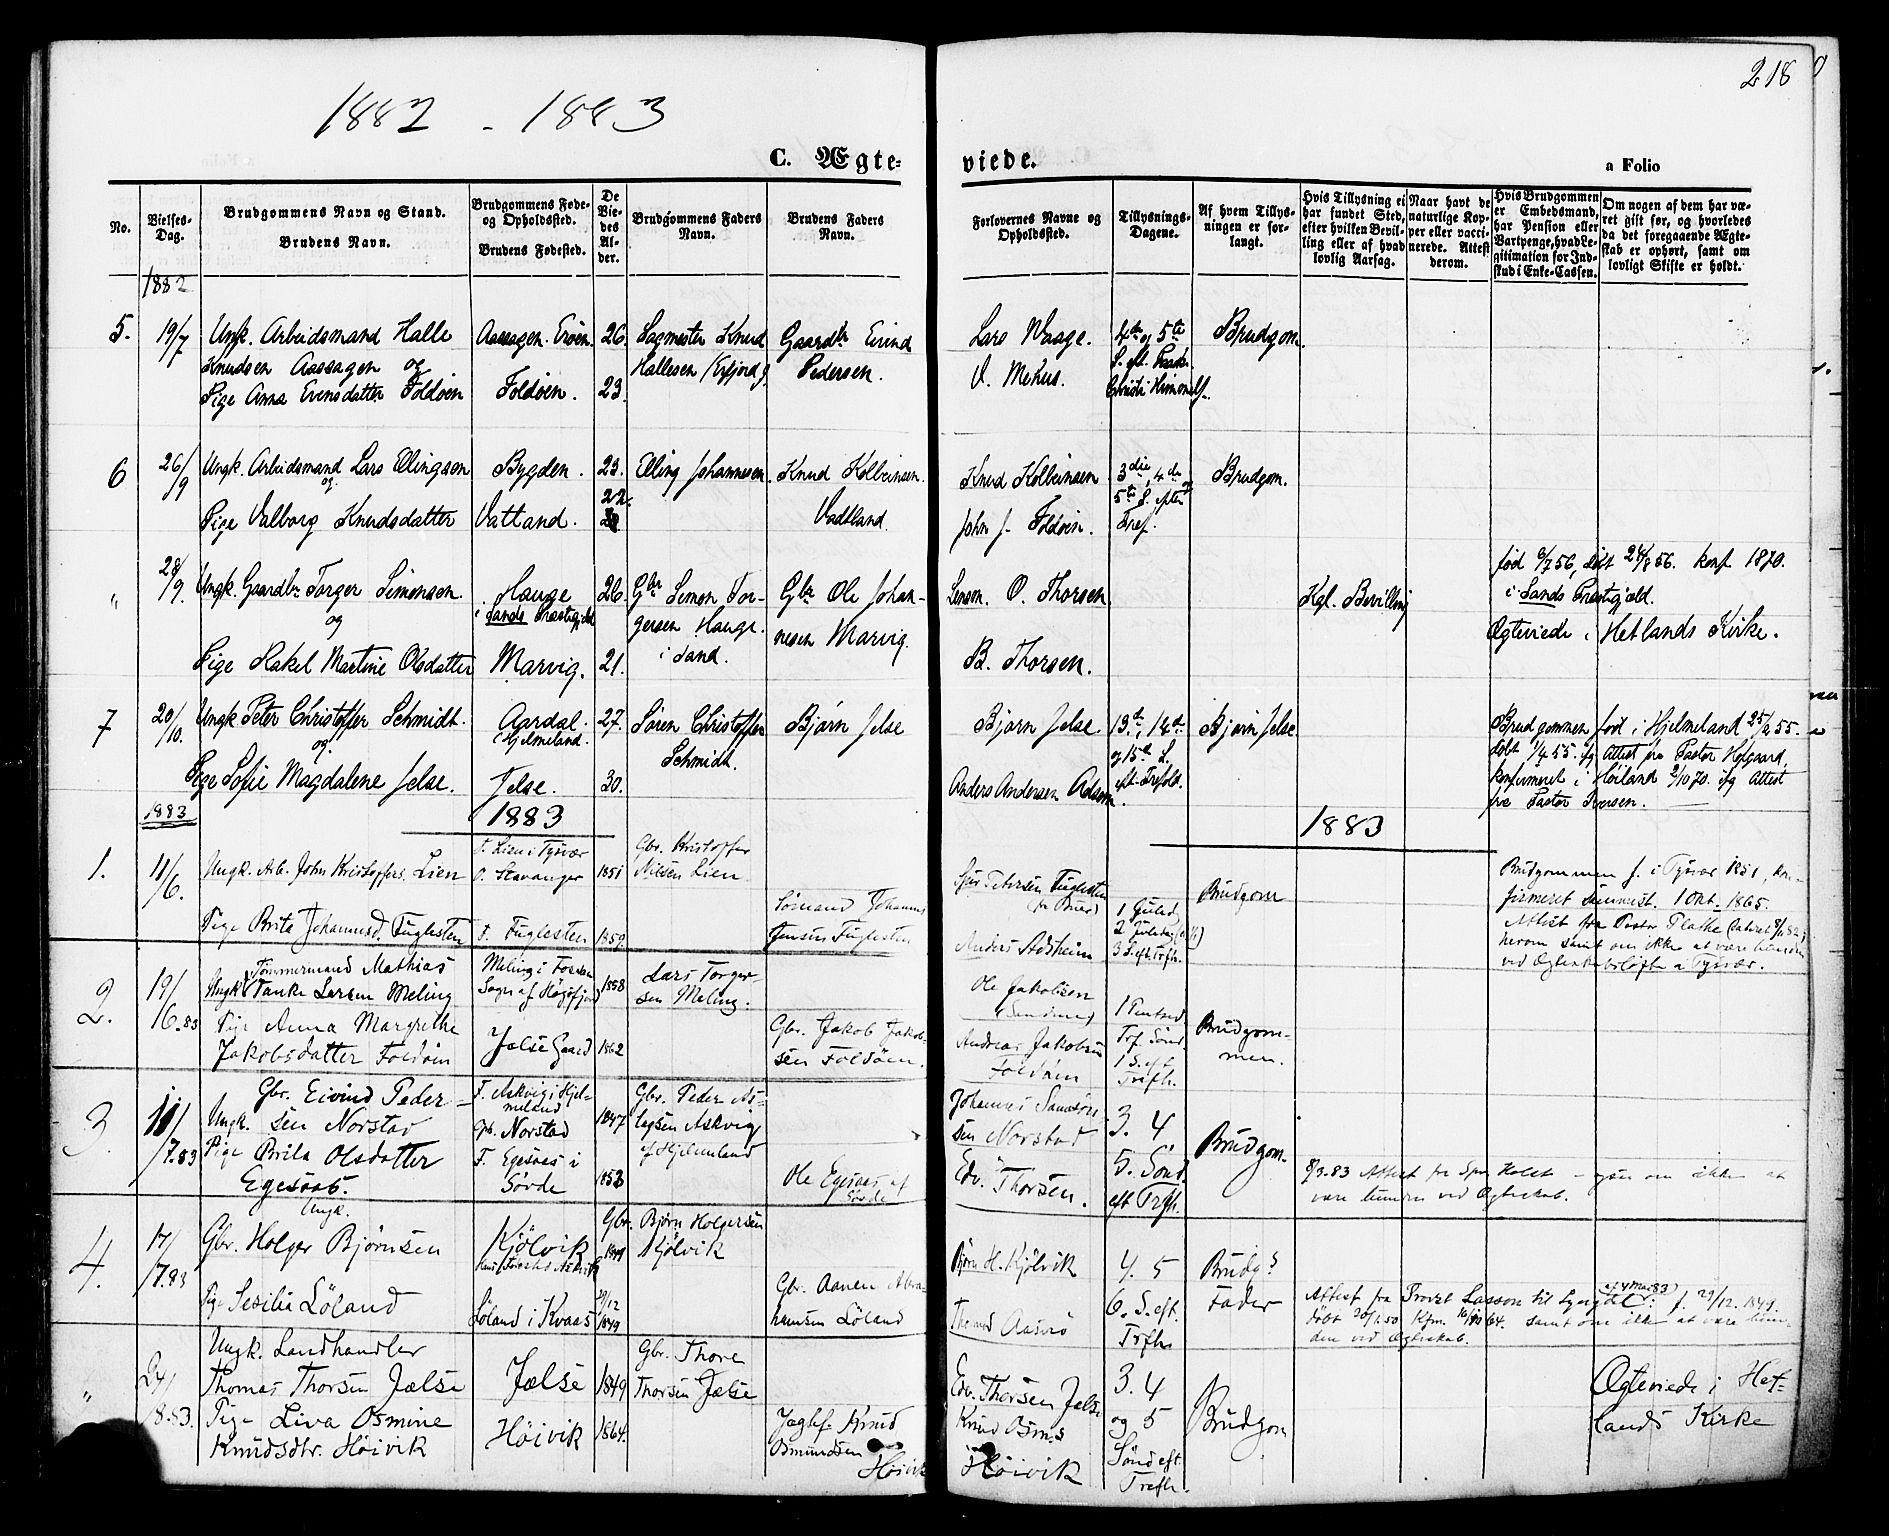 218
1882 - 1883
C. Ægte-
viede.
a Folio
No.
Vielses-
Dag.
Brudgommens Navn og Stand.
Brudens Navn.
Brudgommens Føde-
og Opholdssted.
Brudens Fødested.
De
Vie-
des
Al-
der.
Brudgommens Faders
Navn.
Brudens Faders
Navn.
Forlovernes Navne og
Opholdssted.
Tillysnings-
Dagene.
Af hvem Tillys-
ningen er for-
langt.
Hvis Tillysning ei
har fundet Sted,
efter hvilken Bevil-
ling eller af hvad
lovlig Aarsag.
Naar havt de
naturlige Kop-
per eller vacci-
nerede. Attest
derom.
Hvis Brudgommen
er Embedsmand,
har Pension eller
Vartpenge, hvad Le-
gitimation for Ind-
skud i Enke-Cassen.
Om nogen af dem har væ-
ret gift før, og hvorledes
da det foregaaende Ægte-
skab er ophørt, samt om
lovligt Skifte er holdt.
1882
5.
19/7
Ungk. Arbeidsmand Halle
Knudsen Aassagen
og
Pige Anna Evensdatter Foldøen
Aassagen. Erøen.
Foldøen.
26.
23.
Sagmester Knud
Hallesen
Gaardbr. Eivind
Pedersen.
Lars Waage.
V. Mehus.
4de og 5te
S. eft. Paaske
Christi Himmelf.
Brudgom.
6
26/9
Ungk. Arbeidsmand Lars Ellingsen
og
Pige Valborg Knudsdatter
Bygden.
Vatland.
23.
22.
Elling Johannesen.
Knud Kolbeinsen.
Vadland.
Knud Kolbeinsen
John J. Foldøen.
3die, 4de og
5te S. efter
Tref.
Brudgom.
"
28/9.
Ungk. Gaardbr. Torger Simonsen
og
Pige Hakel Martine Olsdatter
Hauge
i Sands Præstegjeld
Marvig.
26.
21.
Gbr. Simon Tor-
gersen Hauge.
i Sand.
Gbr. Ole Johan-
nesen Marvig.
O. Thorsen
B. Thorsen.
Kgl. Bevilling
fød 8/7 56, døbt 24/8 56. konf. 1870.
i Sands Præstegjeld.
Ægteviede i Hetlands Kirke.
7
20/10.
Ungk. Peter Christoffer Schmidt.
og
Pige Sofie Magdalene Jelse.
Aardal.
Hjelmeland.
Jelse.
27.
30.
Søren Christoffer
Schmidt.
Bjørn Jelse
Bjørn Jelse.
Anders Andersen
13de, 14de
og 15de S.
eft. Trefold.
Bjørn Jelse
Brudgommen fød i Hjelmeland 25/2 55.
døbt 1/4 55. ifg Attest fra Pastor
konfirmeret i Høiland 2/10 70. ifg Attest
fra Pastor Iversen.
1883
1883
1883
1.
11/6.
Ungk. Arb. John Kristoffers. Lien
Pige Brita Johannesd. Fuglesten
F. Lien i Tysvær
O. Stavanger
F. Fuglesten
1851
1859.
Gbr. Kristoffer
Nilsen Lien.
Sømand Johannes
Jensen Fuglesten
Petersen Fuglesten
for Brud
Anders Aasheim
1 Juledag
2 Juledag
3 S. eft. Trfh.
Brudgom
Brudgommen f. i Tysvær 1851, kon-
firmeret sammest. 1 Okt. 1865.
Attest fra Pastor
herom samt om ikke at være bunden
ved Ægteskabsløfte i Tysvær.
2.
19/6.83
Tømmermand Mathias
Ungk. Tanke Larsen Meling
Pige Anna Margrethe
Jakobsdatter Foldøen
Meling i Fossan
Sogn af Høgsfjord
Jelse Gaard
1858
1862
Lars Torger-
sen Meling.
Gbr. Jakob Jakob-
sen Foldøen.
Ole Jakobsen
Andreas Jakobsen
Foldøen
1 Pintsed.
Trf. Sønd.
1 S. eft.
Trefh.
Brudgom-
men.
3.
11/7.83
Gbr. Eivind Peder-
Ungk. sen Norstad
Pige Brita Olsdatter
Egesaas.
F. Askvig i Hjel-
meland
Oph. Norstad
F. Egesaas i
Søvde
1847
1853
Gbr. Peder As-
lagsen Askvig
af Hjelmeland
Ole Egesaas af
Søvde
Johannes Samson-
sen Norstad
Edv. Thorsen.
3. 4
5. Sønd.
eft Trfh.
Brudgom.
8/3.83 Attest fra Holst om ikke at
være bunden ved Ægteskab.
4.
17/7.83
Ungk.
Gbr. Holger Bjørnsen
Pige Sesilia Løland
Kjølvik
Løland i Kvaas
29/12
1849
Gbr. Bjørn Holgersen
Kjølvik
Gbr. Aanen Abra-
hamsen Løland
Bjørn H. Kjølvik
4. 5
6. S. eft.
Trfh.
Brudgs
Fader
Attest fra Provst Lasson til Lyngdal f. 29/12. 1849.
døbt 20/1.50 Kfm. 16/10 64. samt om ikke at være bun-
den ved Ægteskab.
"
24/8.83.
Ungk. Landhandler
Thomas Thorsen Jælse
Pige Liva Osmine
Knudsdtr. Høivik
Jælse
Høivik
1849
1864.
Gbr. Thore
Thorsen Jælse
Knud
Osmundsen
Høivik
Edv. Thorsen Jælse
Knud Osm.s
Høivik
3. 4
og 5
Sønd eft.
Trefh.
Brudgom
Ægteviede i Het-
lands Kirke